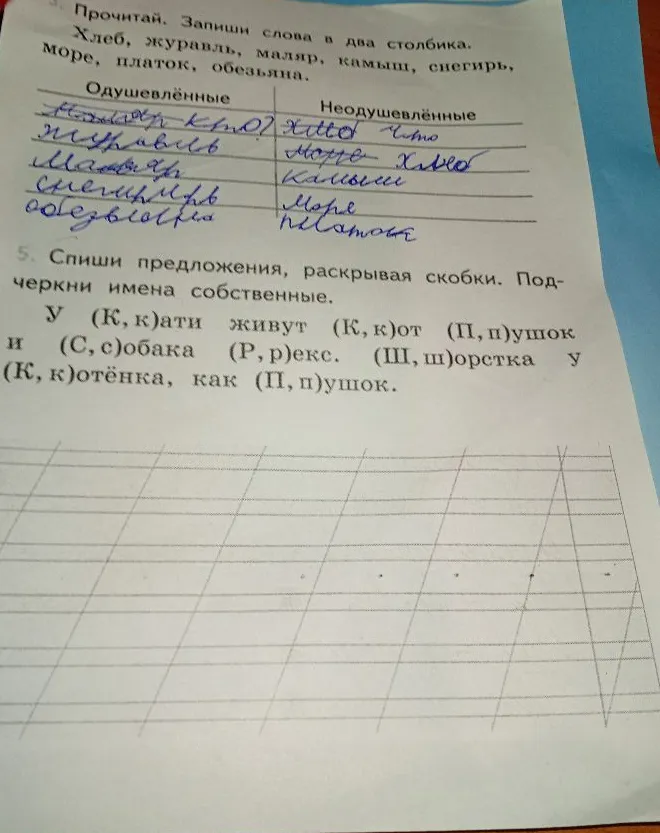 Прочитай. Запиши слова в два столбика.
Хлеб, журавль, маляр, камыш, снегирь,
море, платок, обезьяна.
Одушевлённые Неодушевлённые
кто? Что
журавль Хлеб
Маляр Камыш
снегирь Море
обезьяна платок
5. Спиши предложения, раскрывая скобки. Под-
черкни имена собственные.
У (К, к)ати живут (К, к)от (П, п)ушок
и (С, с)обака (Р, р)екс. (Ш, ш)орстка у
(К, к)отёнка, как (П, п)ушок.